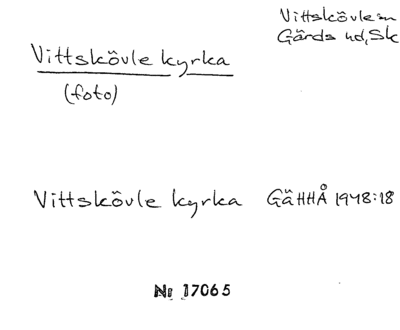 Vittskövle sn
Gärds hd, Sk
Vittskövle kyrka
(foto)
Vittskövle kyrka GäHHÅ 1948:18
Nr 17065